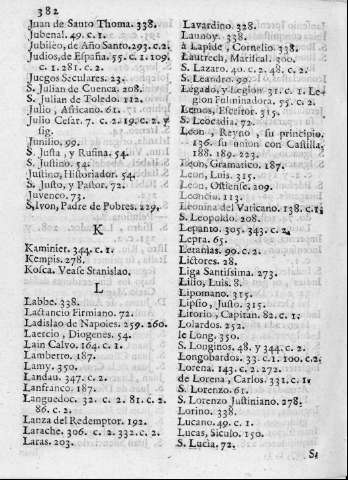 382
Juan de Santo Thoma. 338.
Jubenal. 49. c. 1.
Jubileo, de Año Santo. 293. c. 2.
Judios, de España. 55. c. 1. 109.
c. 1. 281. c. 2.
Juegos Seculares. 23.
S. Julian de Cuenca. 208.
S. Julian de Toledo. 112.
Julio, Africano. 61.
Julio Cesar. 7. c. 2. 19. c. 2. y
sig.
Junilio. 99.
S. Justa, y Rufina. 54.
S. Justino. 54.
Justino, Historiador. 54.
S. Justo, y Pastor. 72.
Juvenco. 73.
S. Ivon, Padre de Pobres. 229.
K
Kaminier. 344. c. 1.
Kempis. 278.
Kosca. Vease Stanislao.
L
Labbe. 338.
Lactancio Firmiano. 72.
Ladislao de Napoles. 259. 260.
Laercio, Diogenes. 54.
Lain Calvo. 164. c. 1.
Lamberto. 187.
Lamy. 350.
Landau. 347. c. 2.
Lanfranco. 187.
Languedoc. 32. c. 2. 81. c. 2.
86. c. 2.
Lanza del Redemptor. 192.
Larache. 306. c. 2. 332. c. 2.
Laras. 203.
Lavardino. 328.
Launoy. 338.
à Lapide, Cornelio. 338.
Lautrech, Mariscal. 300.
S. Lazaro. 40. c. 2. 48. c. 2.
S. Leandro. 99.
Legado, y Legion. 31. c. 1. Le-
gion Fulminadora. 55. c. 2.
Lemos, Escritor. 315.
S. Leocadia. 72.
Leon, Reyno, su principio.
136. su union con Castilla,
188. 189. 223.
Leon, Gramatico. 187.
Leon, Luis. 315.
Leon, Ostiense. 209.
Leoncio. 113.
Leonina del Vaticano. 138. c. 1.
S. Leopoldo. 208.
Lepanto. 305. 343. c. 2.
Lepra. 65.
Letanias. 90. c. 2.
Lictores. 28.
Liga Santissima. 273.
Lilio, Luis. 8.
Lipomano. 315.
Lipsio, Justo. 315.
Litorio, Capitan. 82. c. 1.
Lolardos. 252.
le Long. 350.
S. Longinos. 48. y 344. c. 2.
Longobardos. 33. c. 1. 100. c. 2.
Lorena. 143. c. 2. 272.
de Lorena, Carlos. 331. c. 1.
S. Lorenzo. 61.
S. Lorenzo Justiniano. 278.
Lorino. 338.
Lucano. 49. c. 1.
Lucas, Siculo. 150.
S. Lucia. 72.
S.